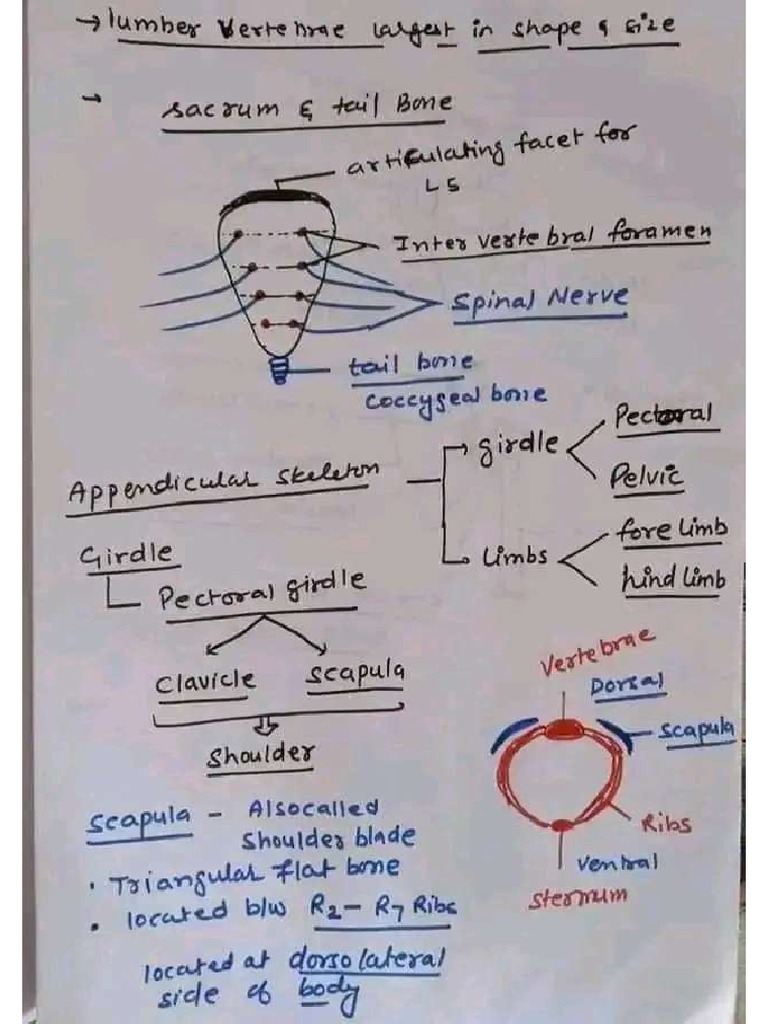 → lumber vertebrae largest in shape & size
→ sacrum & tail Bone
articulating facet for
L5
Inter vertebral foramen
spinal Nerve
tail bone
coccygeal bone
Appendicular skeleton
girdle
Pectoral
Pelvic
Limbs
fore limb
hind limb
Girdle
Pectoral girdle
Clavicle
scapula
shoulder
vertebrae
Dorsal
scapula
Ribs
ventral
sternum
scapula - Also called
shoulder blade
• Triangular flat bone
• located b/w R2 – R7 Ribs
located at dorso lateral
side of body